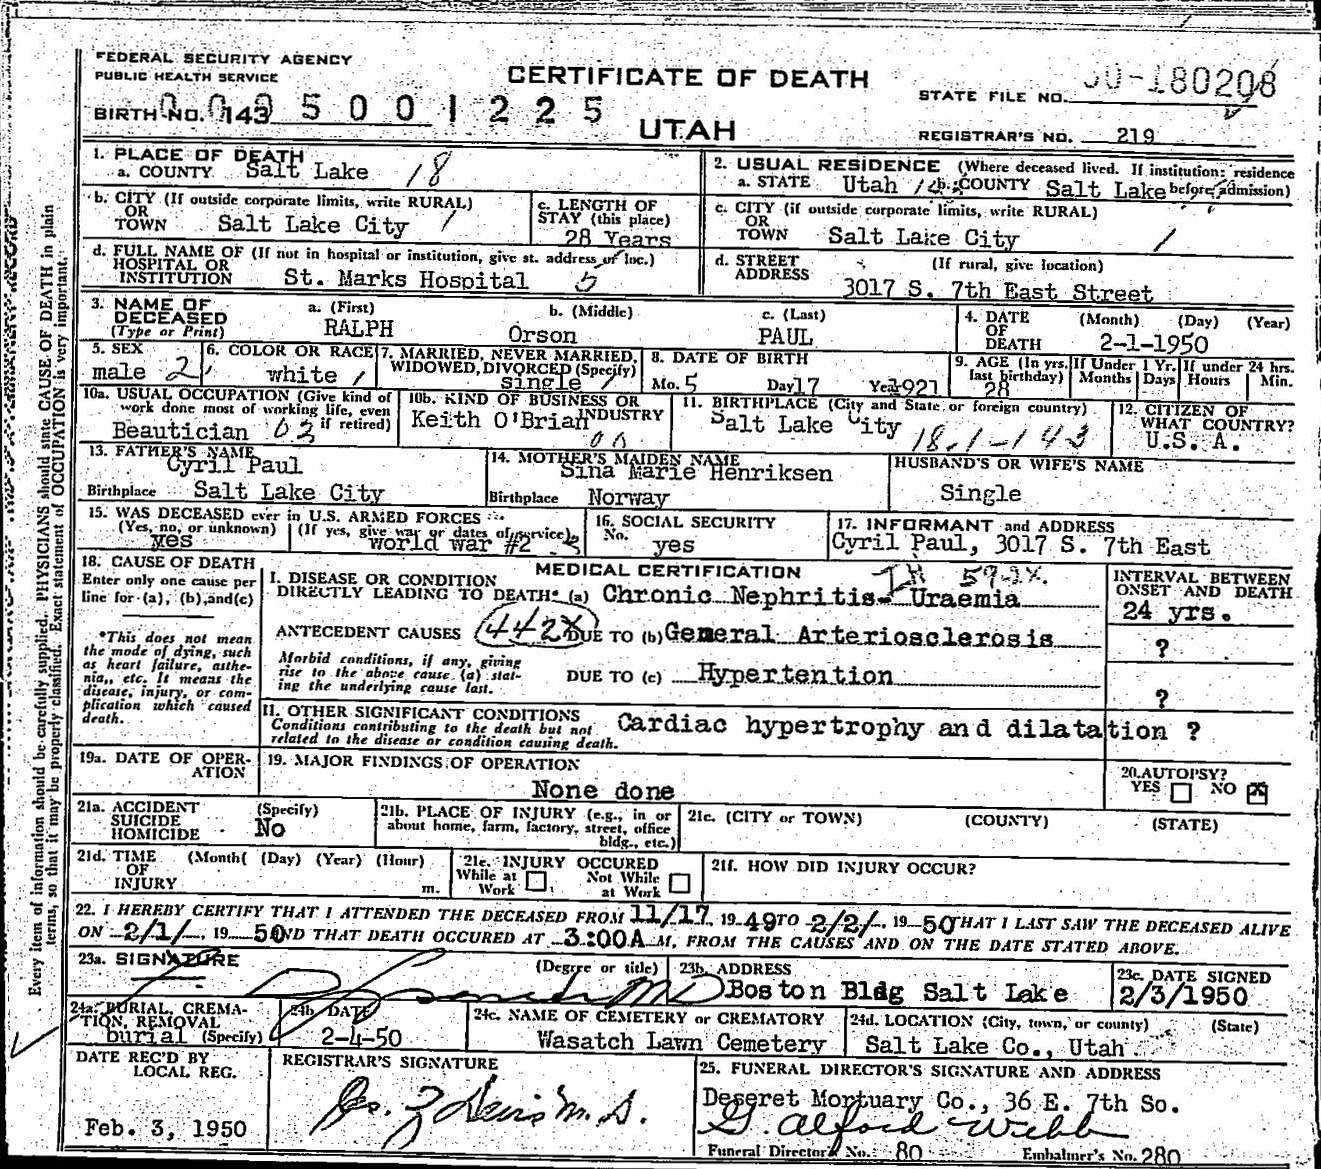 FEDERAL SECURITY AGENCY
PUBLIC HEALTH SERVICE
CERTIFICATE OF DEATH
UTAH
BIRTH NO. 143
0 0 0 5 0 0 1 2 2 5
STATE FILE NO. 50-180208
REGISTRAR'S NO. 219
1. PLACE OF DEATH
a. COUNTY Salt Lake 18
2. USUAL RESIDENCE (Where deceased lived. If institution: residence before admission)
a. STATE Utah b. COUNTY Salt Lake
b. CITY (If outside corporate limits, write RURAL)
OR
TOWN Salt Lake City 1
c. LENGTH OF
STAY (this place)
28 Years
c. CITY (if outside corporate limits, write RURAL)
OR
TOWN Salt Lake City 1
d. FULL NAME OF (If not in hospital or institution, give st. address or loc.)
HOSPITAL OR
INSTITUTION St. Marks Hospital 5
d. STREET (If rural, give location)
ADDRESS
3017 S. 7th East Street
3. NAME OF
DECEASED
(Type or Print)
a. (First) b. (Middle) c. (Last)
RALPH Orson PAUL
4. DATE (Month) (Day) (Year)
OF
DEATH 2-1-1950
5. SEX
male 2
6. COLOR OR RACE
white 1
7. MARRIED, NEVER MARRIED,
WIDOWED, DIVORCED (Specify)
single 1
8. DATE OF BIRTH
Mo. 5 Day 17 Year 1921
9. AGE (In yrs. last birthday)
28
If Under 1 Yr.
Months Days
If under 24 hrs.
Hours Min.
10a. USUAL OCCUPATION (Give kind of
work done most of working life, even
if retired)
Beautician 03
10b. KIND OF BUSINESS OR
INDUSTRY
Keith O'Brian
11. BIRTHPLACE (City and State or foreign country)
Salt Lake City
18-1-143
12. CITIZEN OF
WHAT COUNTRY?
U.S.A.
13. FATHER'S NAME
Cyril Paul
Birthplace Salt Lake City
14. MOTHER'S MAIDEN NAME
Sina Marie Henriksen
Birthplace Norway
HUSBAND'S OR WIFE'S NAME
Single
15. WAS DECEASED ever in U.S. ARMED FORCES
(Yes, no, or unknown) (If yes, give war or dates of service)
yes world war #2
16. SOCIAL SECURITY
No. yes
17. INFORMANT and ADDRESS
Cyril Paul, 3017 S. 7th East
18. CAUSE OF DEATH
Enter only one cause per
line for (a), (b), and(c)
*This does not mean
the mode of dying, such
as heart failure, asthe-
nia,, etc. It means the
disease, injury, or com-
plication which caused
death.
MEDICAL CERTIFICATION
592x
I. DISEASE OR CONDITION
DIRECTLY LEADING TO DEATH* (a) Chronic Nephritis- Uraemia
ANTECEDENT CAUSES 442x DUE TO (b) General Arteriosclerosis
Morbid conditions, if any, giving
rise to the above cause (a) stat-
ing the underlying cause last.
DUE TO (c) Hypertention
INTERVAL BETWEEN
ONSET AND DEATH
24 yrs.
?
?
II. OTHER SIGNIFICANT CONDITIONS
Conditions contributing to the death but not
related to the disease or condition causing death.
Cardiac hypertrophy and dilatation ?
19a. DATE OF OPER-
ATION
19. MAJOR FINDINGS OF OPERATION
None done
20. AUTOPSY?
YES NO X
21a. ACCIDENT (Specify)
SUICIDE
HOMICIDE No
21b. PLACE OF INJURY (e.g., in or
about home, farm, factory, street, office
bldg., etc.)
21c. (CITY or TOWN) (COUNTY) (STATE)
21d. TIME (Month( (Day) (Year) (Hour)
OF
INJURY m.
21e. INJURY OCCURED
While at Not While
Work at Work
21f. HOW DID INJURY OCCUR?
22. I HEREBY CERTIFY THAT I ATTENDED THE DECEASED FROM 11/17 19 49 TO 2/2/ 19 50 THAT I LAST SAW THE DECEASED ALIVE
ON 2/1/ 19 50 ND THAT DEATH OCCURED AT 3:00A M, FROM THE CAUSES AND ON THE DATE STATED ABOVE.
23a. SIGNATURE (Degree or title)
MD
23b. ADDRESS
Boston Bldg Salt Lake
23c. DATE SIGNED
2/3/1950
24a. BURIAL, CREMA-
TION, REMOVAL
burial (Specify)
24b. DATE
2-4-50
24c. NAME OF CEMETERY or CREMATORY
Wasatch Lawn Cemetery
24d. LOCATION (City, town, or county) (State)
Salt Lake Co., Utah
DATE REC'D BY
LOCAL REG.
Feb. 3, 1950
REGISTRAR'S SIGNATURE
25. FUNERAL DIRECTOR'S SIGNATURE AND ADDRESS
Deseret Mortuary Co., 36 E. 7th So.
G. Alford Webb
Funeral Director No. 80 Embalmer's No. 280
Every item of information should be carefully supplied. PHYSICIANS should state CAUSE OF DEATH in plain
terms, so that it may be properly classified. Exact statement of OCCUPATION is very important.